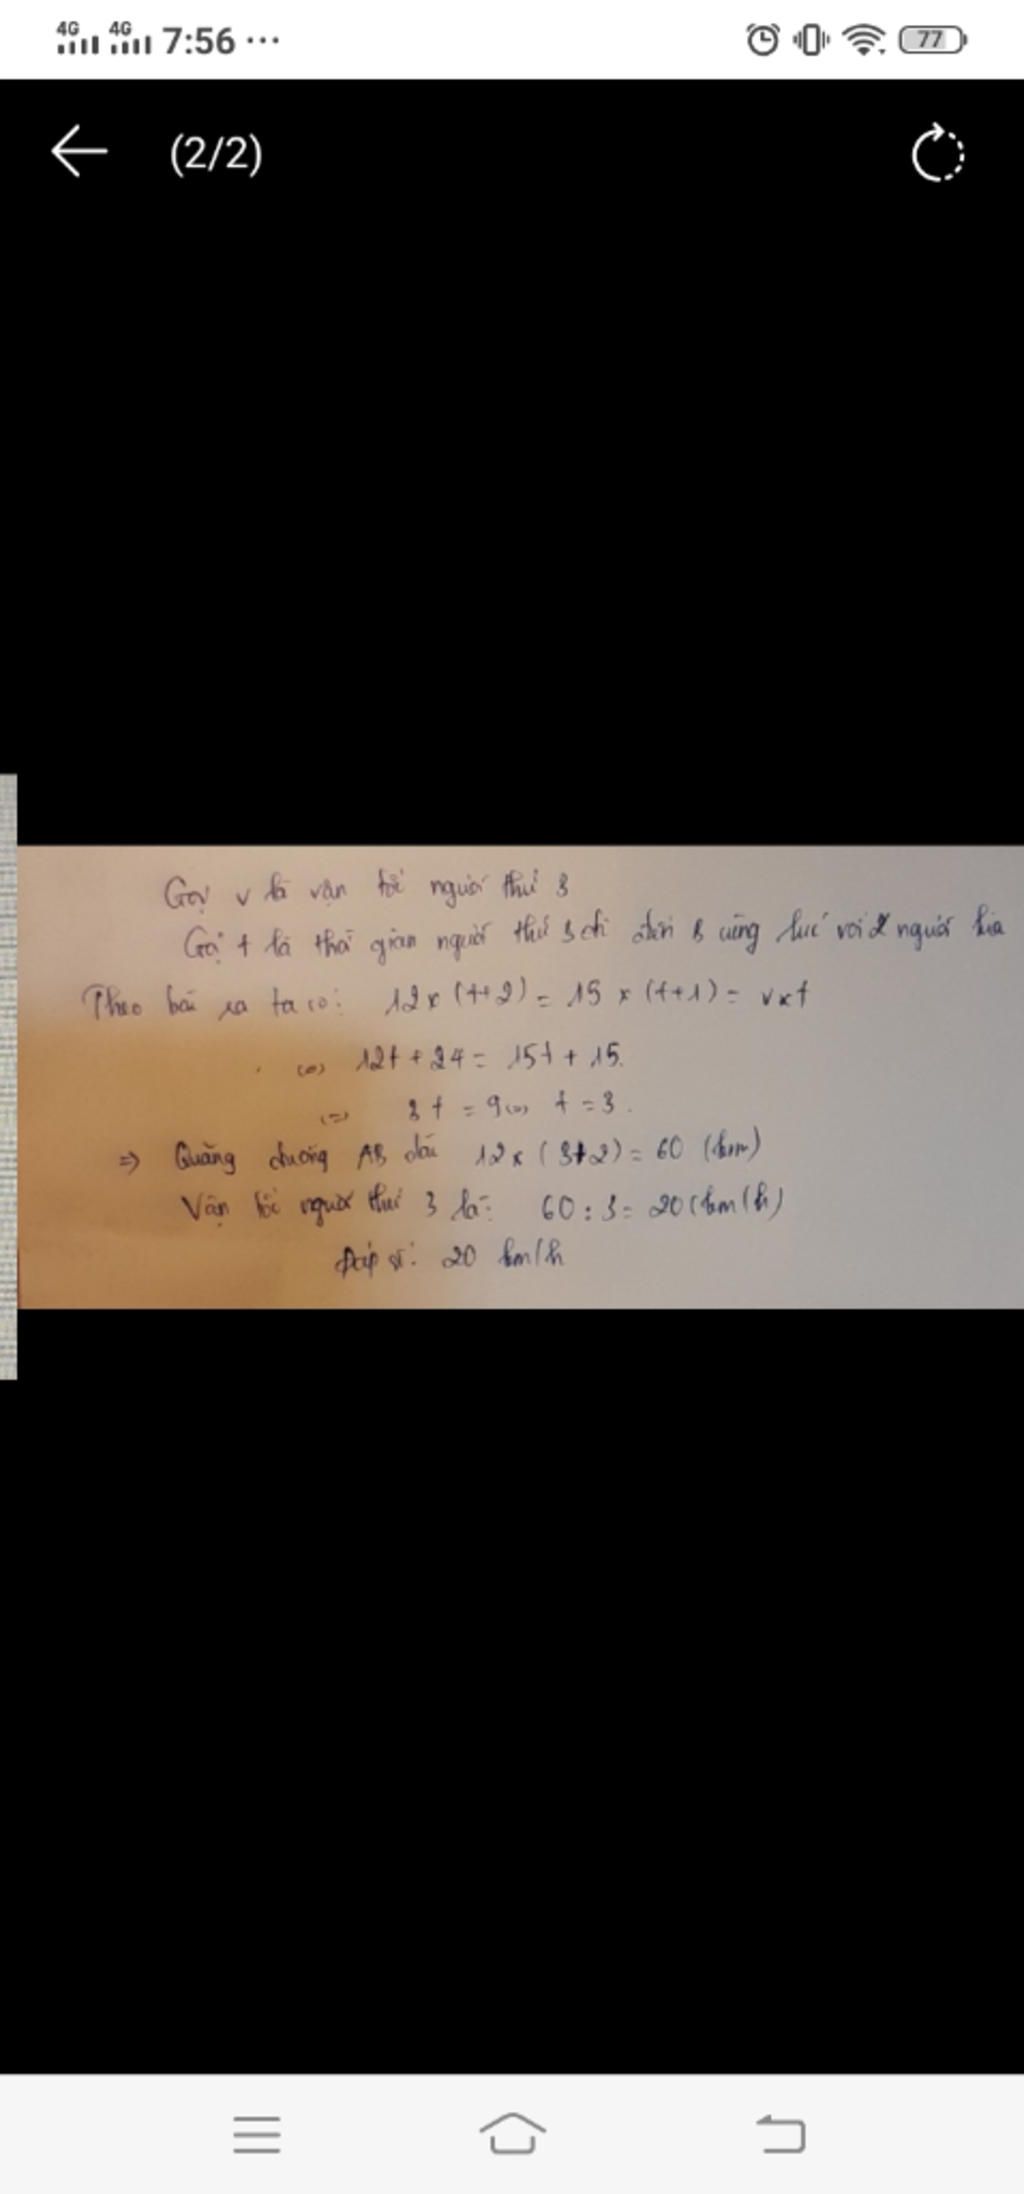 4G 4G 7:56 ... 77
(2/2)
Gọi v là vận tốc người thứ 3
Gọi t là thời gian người thứ 3 đi đến B cùng lúc với 2 người kia
Theo bài ra ta có: 12 x (t+2) = 15 x (t+1) = v x t
(=) 12t + 24 = 15t + 15.
(=) 3t = 9 (=) t = 3.
=> Quãng đường AB dài 12 x (3+2) = 60 (km)
Vận tốc người thứ 3 là: 60 : 3 = 20 (km/h)
Đáp số: 20 km/h